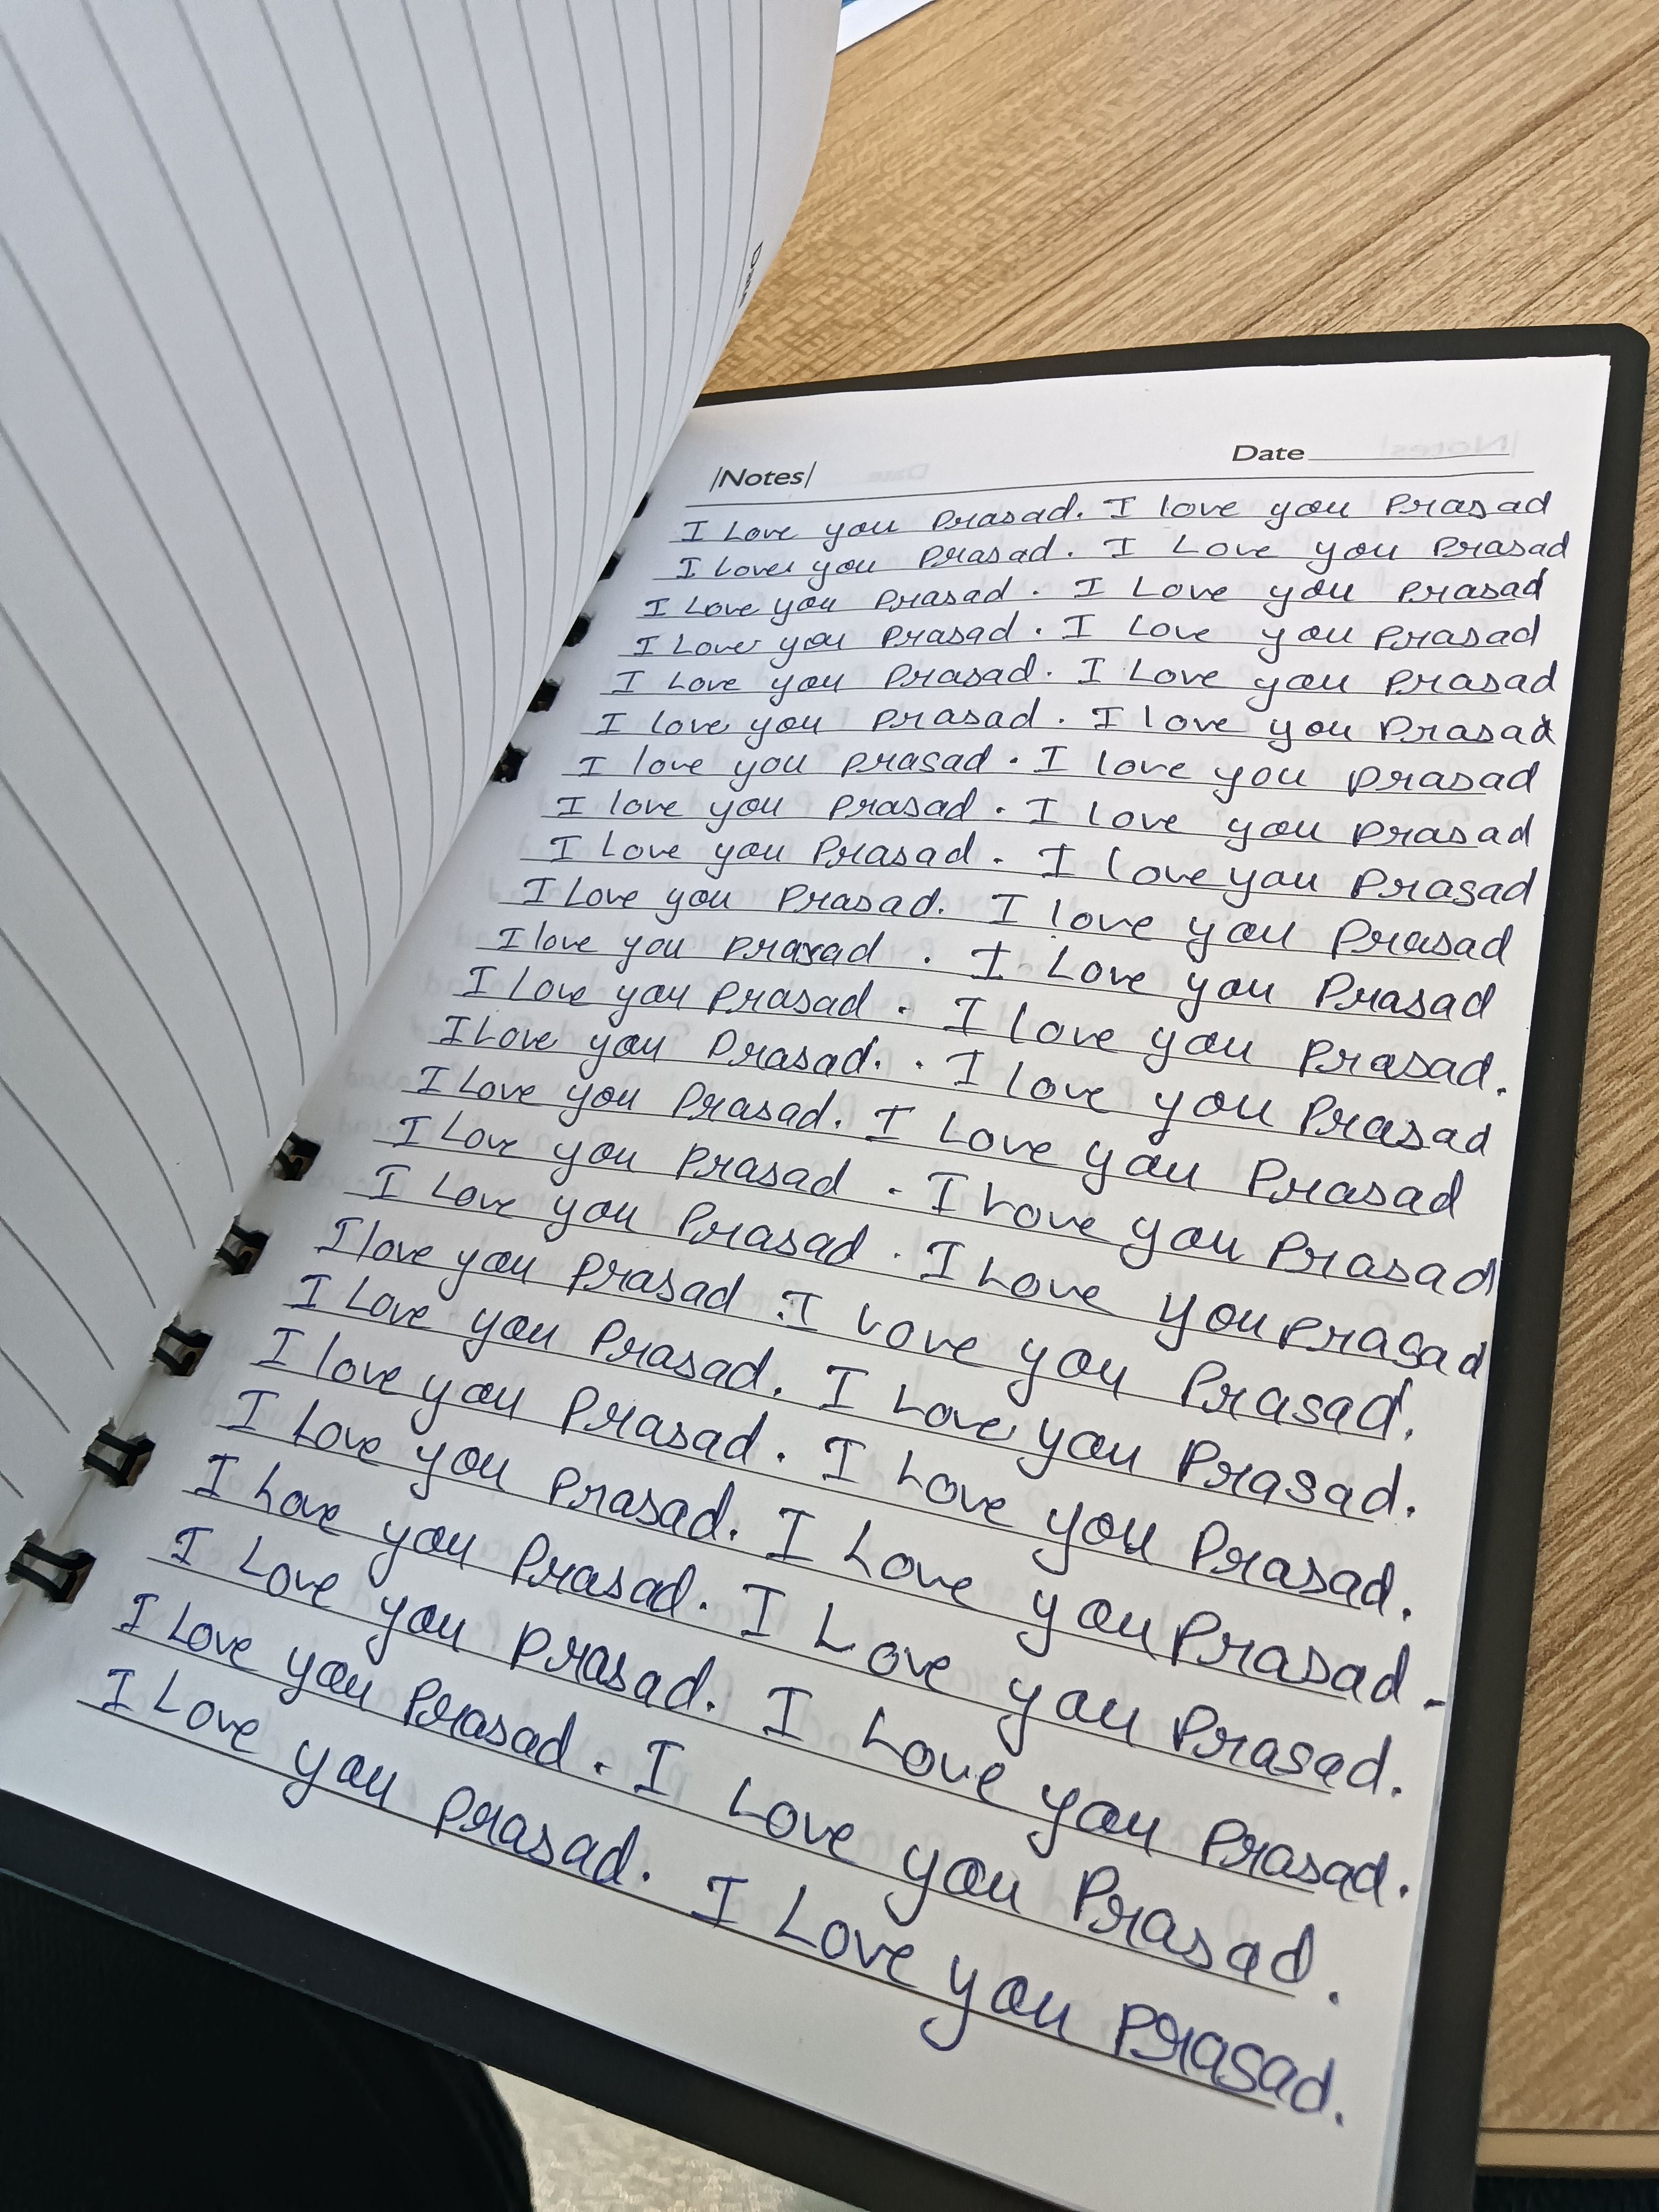 |Notes| Date
I Love you Prasad. I love you Prasad
I Love you Prasad. I Love you Prasad
I Love you Prasad. I Love you Prasad
I Love you Prasad. I Love you Prasad
I Love you Prasad. I Love you Prasad
I love you Prasad. I love you Prasad
I love you Prasad. I love you Prasad
I love you Prasad. I love you Prasad
I Love you Prasad. I love you Prasad
I Love you Prasad. I love you Prasad
I love you Prasad. I Love you Prasad
I Love you Prasad. I love you Prasad.
I Love you Prasad.. I love you Prasad
I Love you Prasad. I Love you Prasad
I Love you Prasad. I Love you Prasad
I Love you Prasad. I Love you Prasad
I love you Prasad. I Love you Prasad.
I Love you Prasad. I Love you Prasad.
I love you Prasad. I Love you Prasad.
I Love you Prasad. I Love you Prasad-
I Love you Prasad. I Love you Prasad.
I Love you Prasad. I Love you Prasad.
I Love you Prasad. I Love you Prasad.
I Love you Prasad. I Love you Prasad.